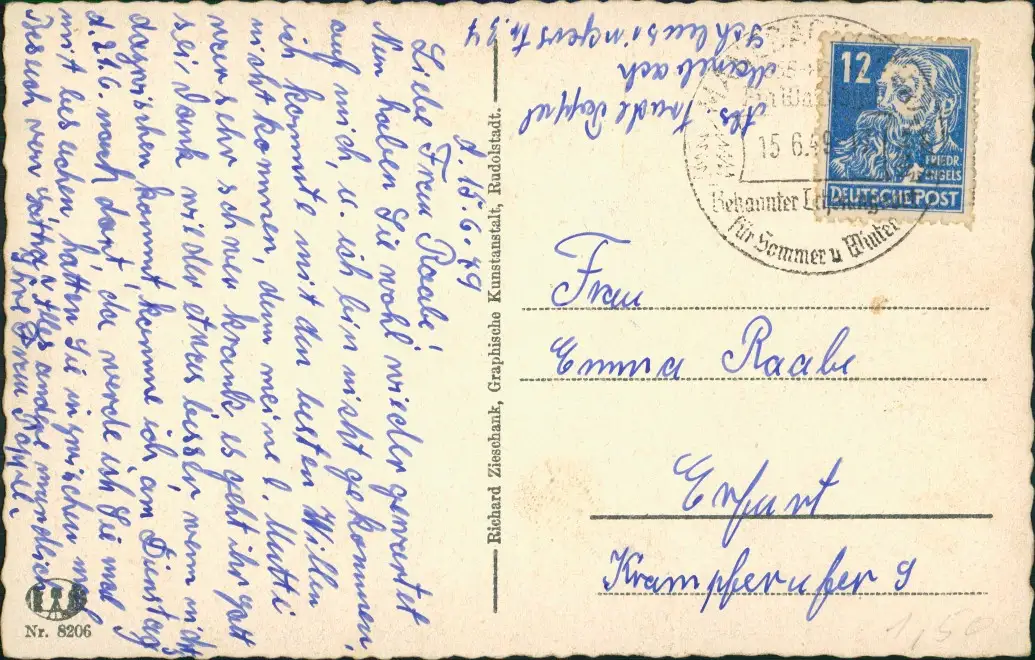 d. 15.6.49
Liebe Frau Raabe!
Nun haben Sie wohl wieder gewartet
auf mich, u. ich bin nicht gekommen,
ich konnte mit den besten Willen
nicht kommen, denn meine l. Mutti
wer sehr schwer krank es geht ihr gott
sei dank wieder etwas besser, wenn nichts
dazwischen kommt komme ich am Dienstag
d. 21.6. nach dort, da werde ich Sie mal
mit besuchen, hätten Sie inzwischen mal
Besuch von Alles andre mündlich
Ihre Frau Poppel.
Nr. 8206
Richard Zieschank, Graphische Kunstanstalt, Rudolstadt.
Abs. Trude Poppel
Manebach
Schleusingerstr. 34
15 6.49
Bekannter
für Sommer u Winter
12
FRIEDR.
ENGELS
DEUTSCHE POST
Frau
Emma Raabe
Erfurt
Krämpferufer 9
1,50